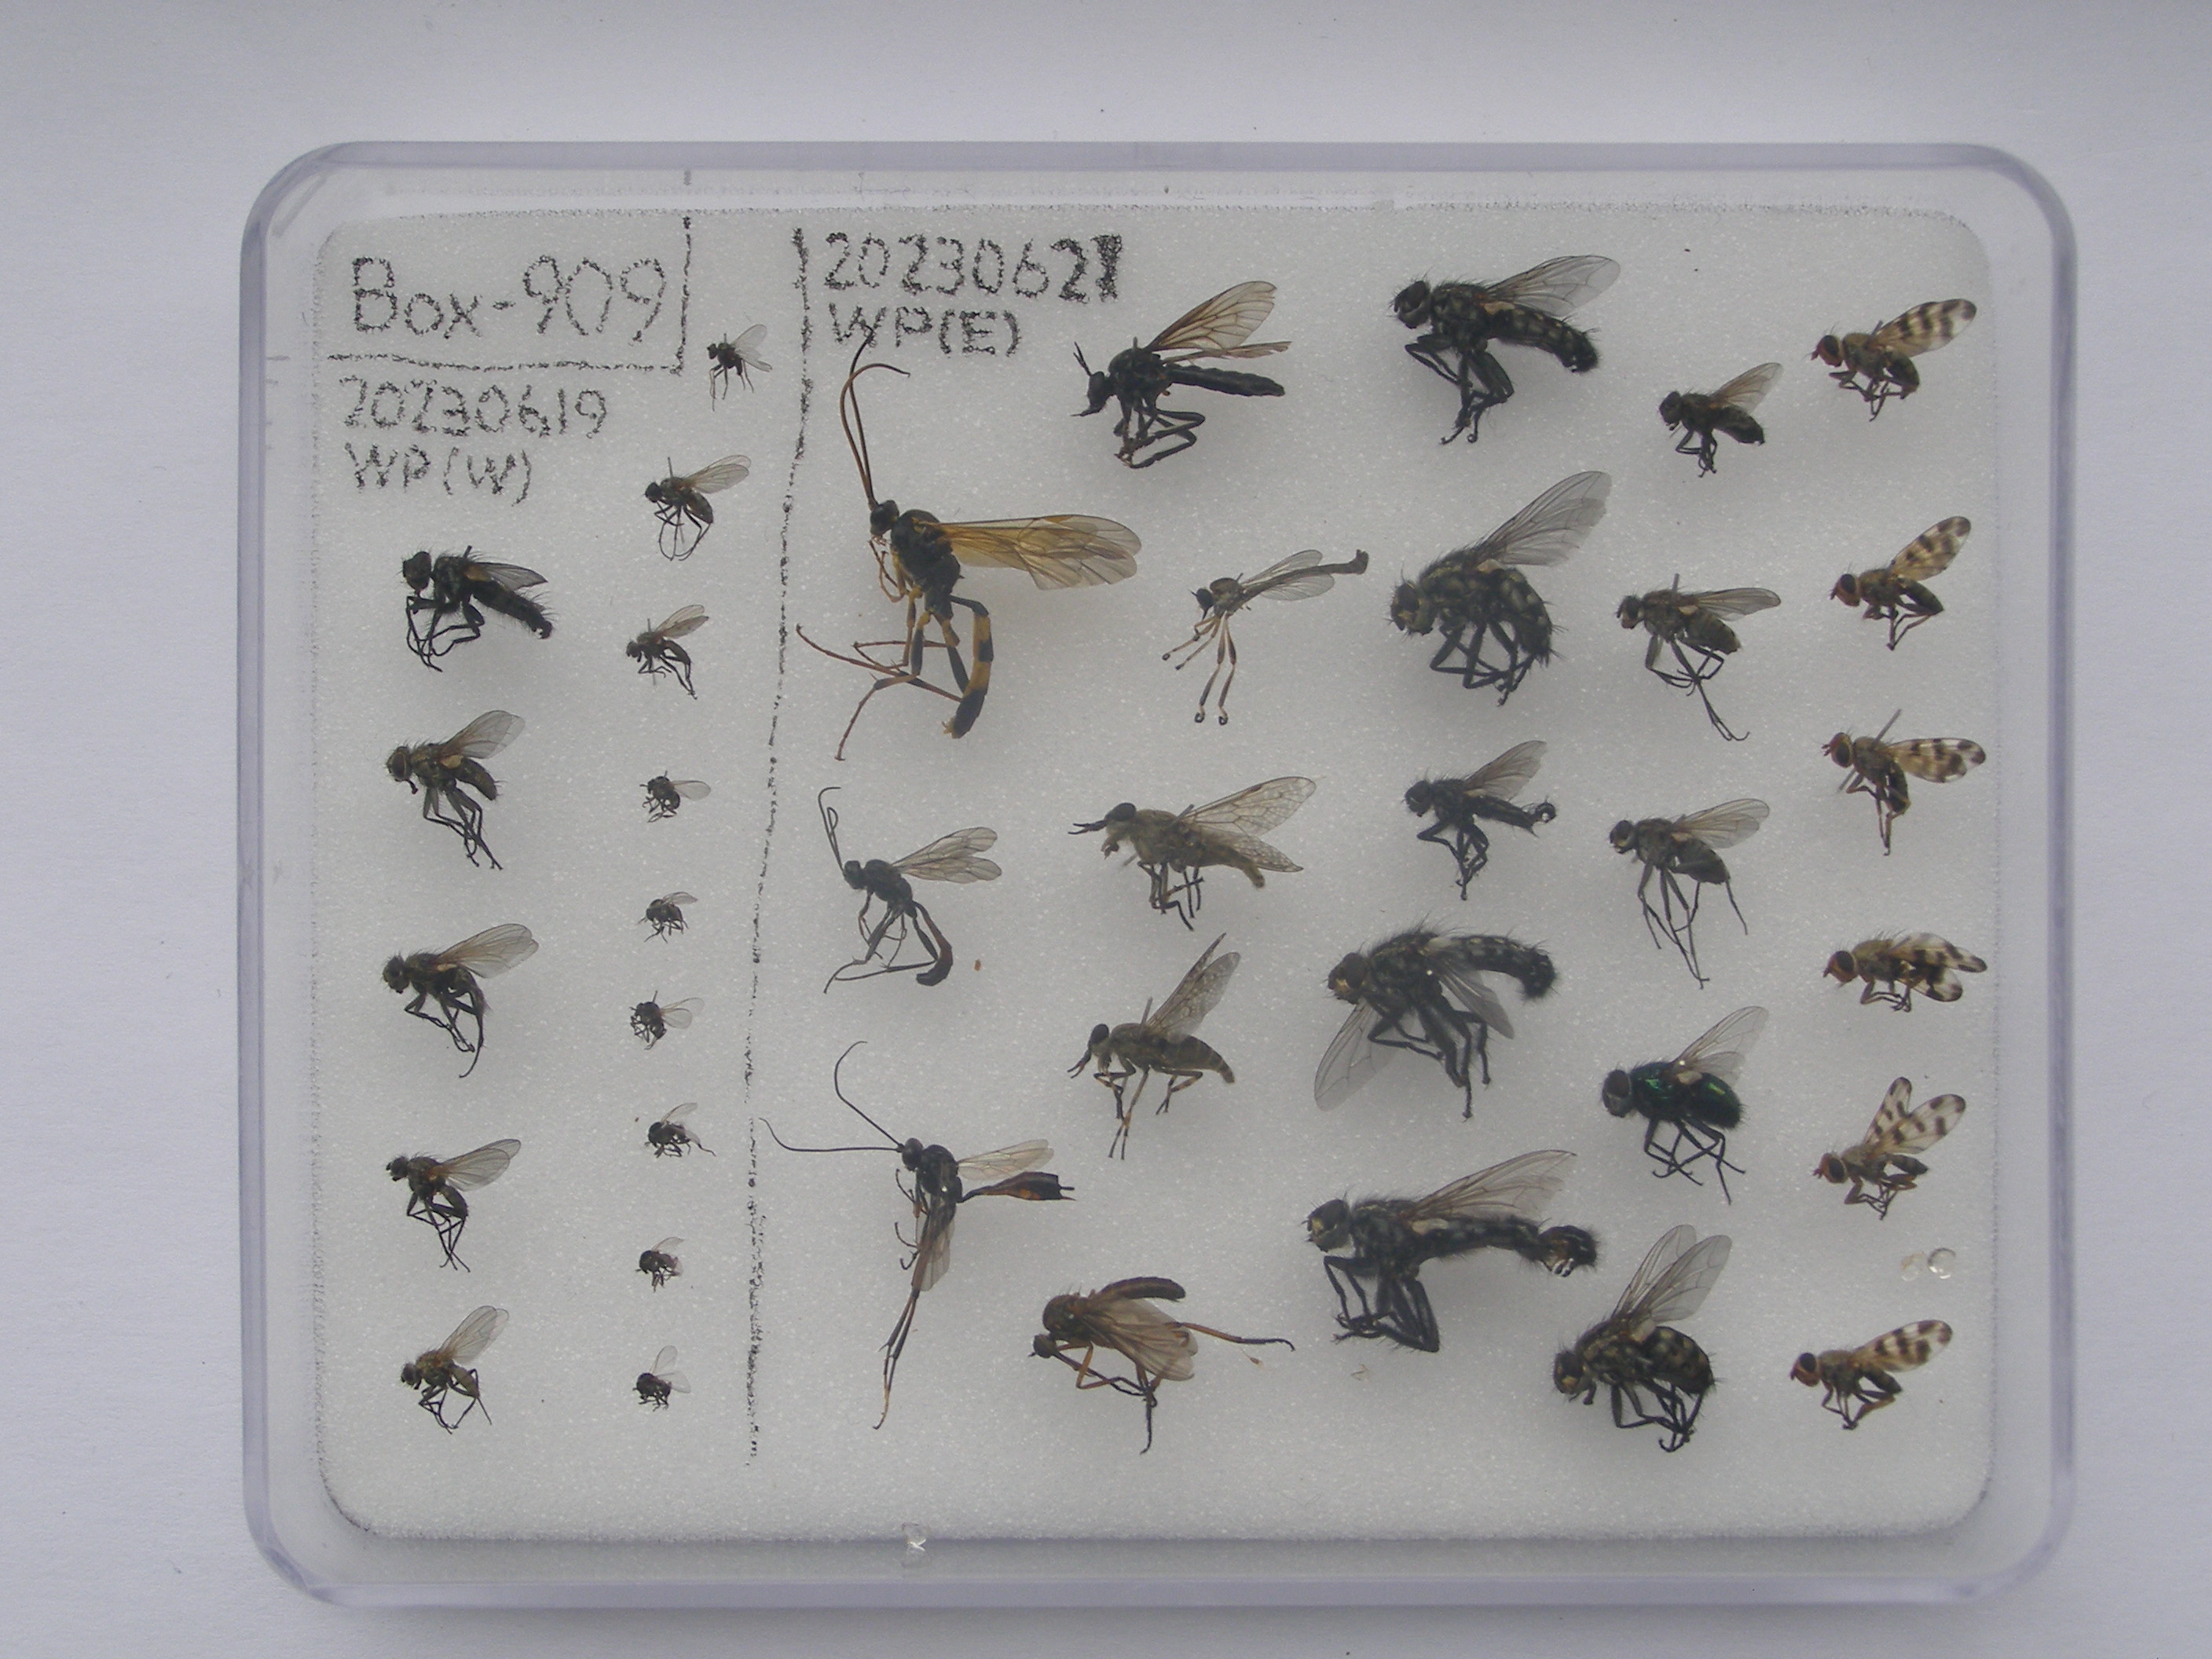 Box-909
20230619
WP(W)
20230621
WP(E)